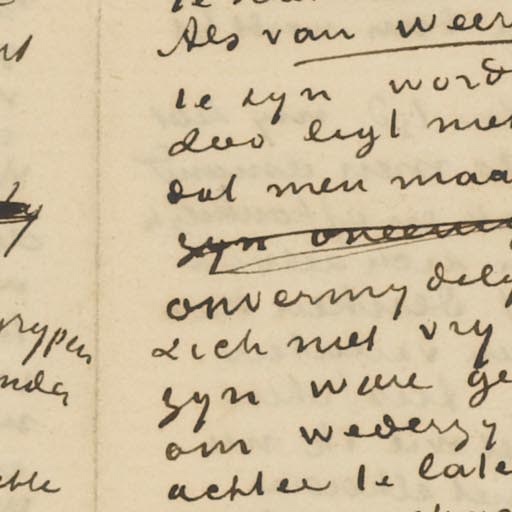 Als van weer
te zyn word
door ligt met
dat men maa
zyn oneeni
onvermydely
zich met vry
zyn ware ge
om wederzy
achter te late
rypen
nder